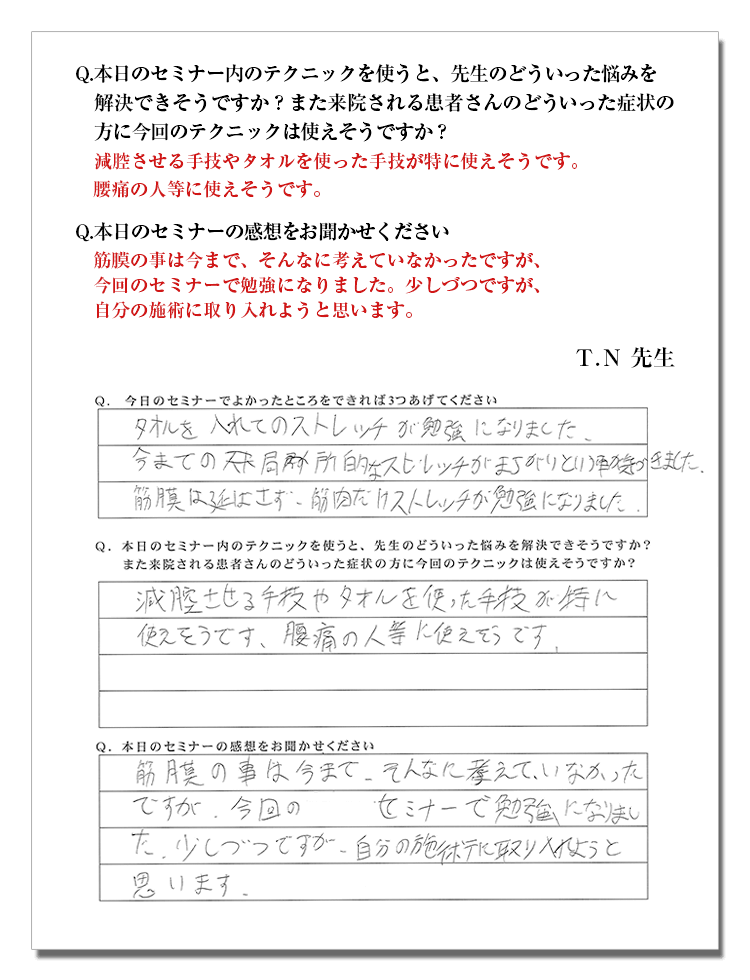 Q.本日のセミナー内のテクニックを使うと、先生のどういった悩みを
解決できそうですか？また来院される患者さんのどういった症状の
方に今回のテクニックは使えそうですか？
減腔させる手技やタオルを使った手技が特に使えそうです。
腰痛の人等に使えそうです。
Q.本日のセミナーの感想をお聞かせください
筋膜の事は今まで、そんなに考えていなかったですが、
今回のセミナーで勉強になりました。少しづつですが、
自分の施術に取り入れようと思います。
T.N 先生
Q. 今日のセミナーでよかったところをできれば3つあげてください
タオルを入れてのストレッチが勉強になりました、
今までの 局 所的なストレッチがまちがりという事が気づきました.
筋膜は延ばさず、筋肉だけストレッチが勉強になりました.
Q. 本日のセミナー内のテクニックを使うと、先生のどういった悩みを解決できそうですか？
また来院される患者さんのどういった症状の方に今回のテクニックは使えそうですか？
減腔させる手技やタオルを使った手技が特に
使えそうです、腰痛の人等に使えそうです.
Q. 本日のセミナーの感想をお聞かせください
筋膜の事は今まで、そんなに考えて、いなかった
ですが、今回の セミナーで勉強になりまし
た、少しづつですが、自分の施術に取り入れようと
思います、